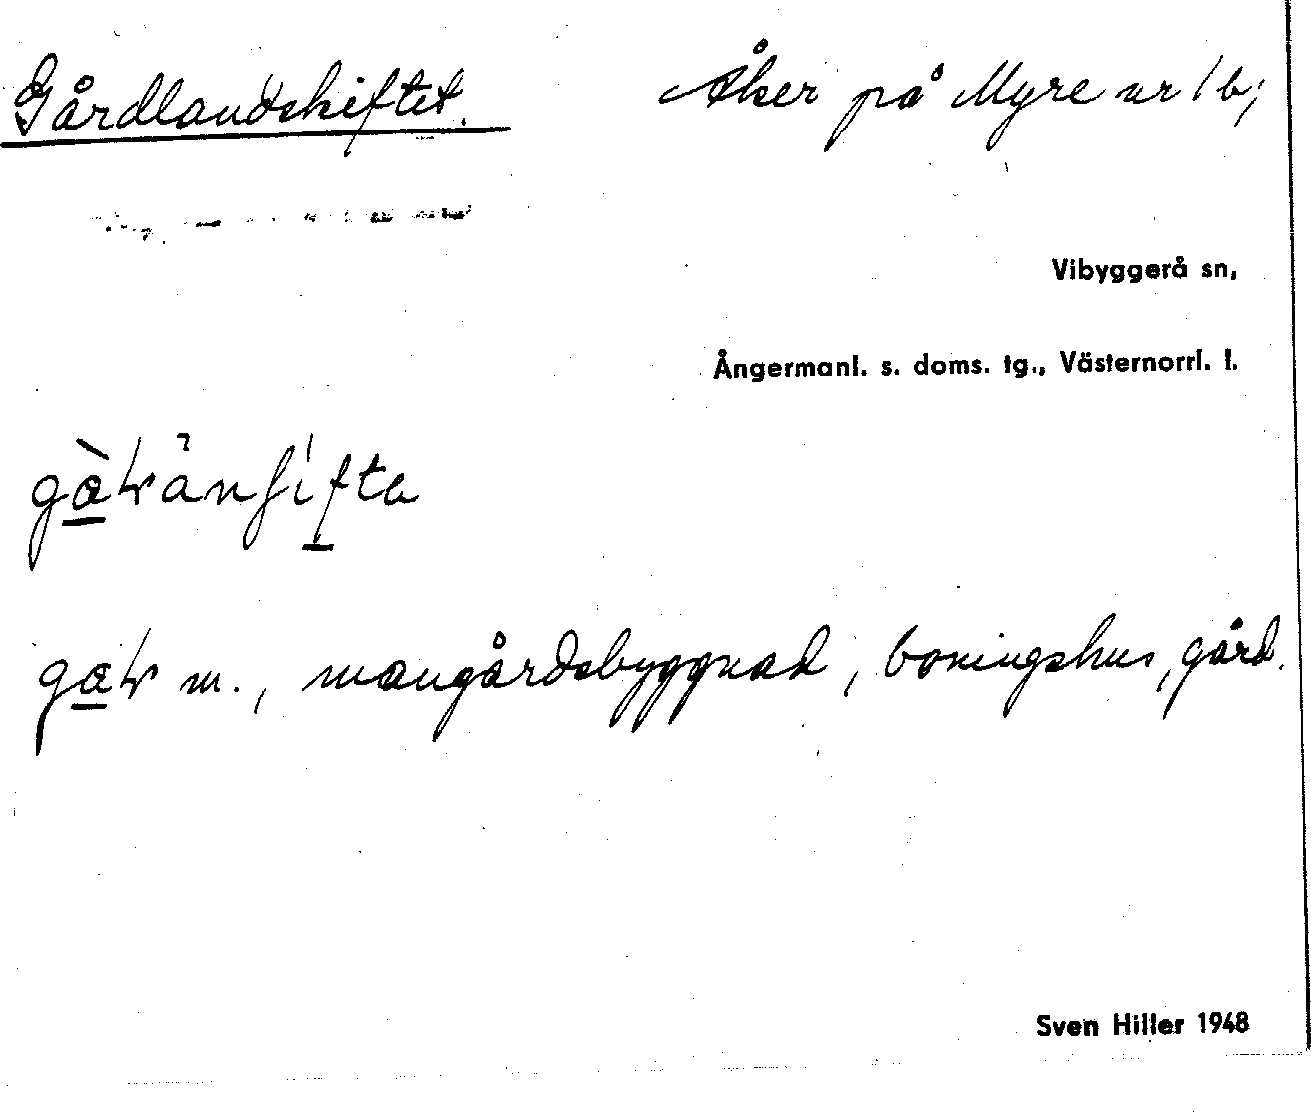 Gårdlandskiftet. Åker på Myre nr 1b;
Vibyggerå sn,
Ångermanl. s. doms. tg., Västernorrl. l.
m., mangårdsbyggnad, boningshus, gård.
Sven Hiller 1948